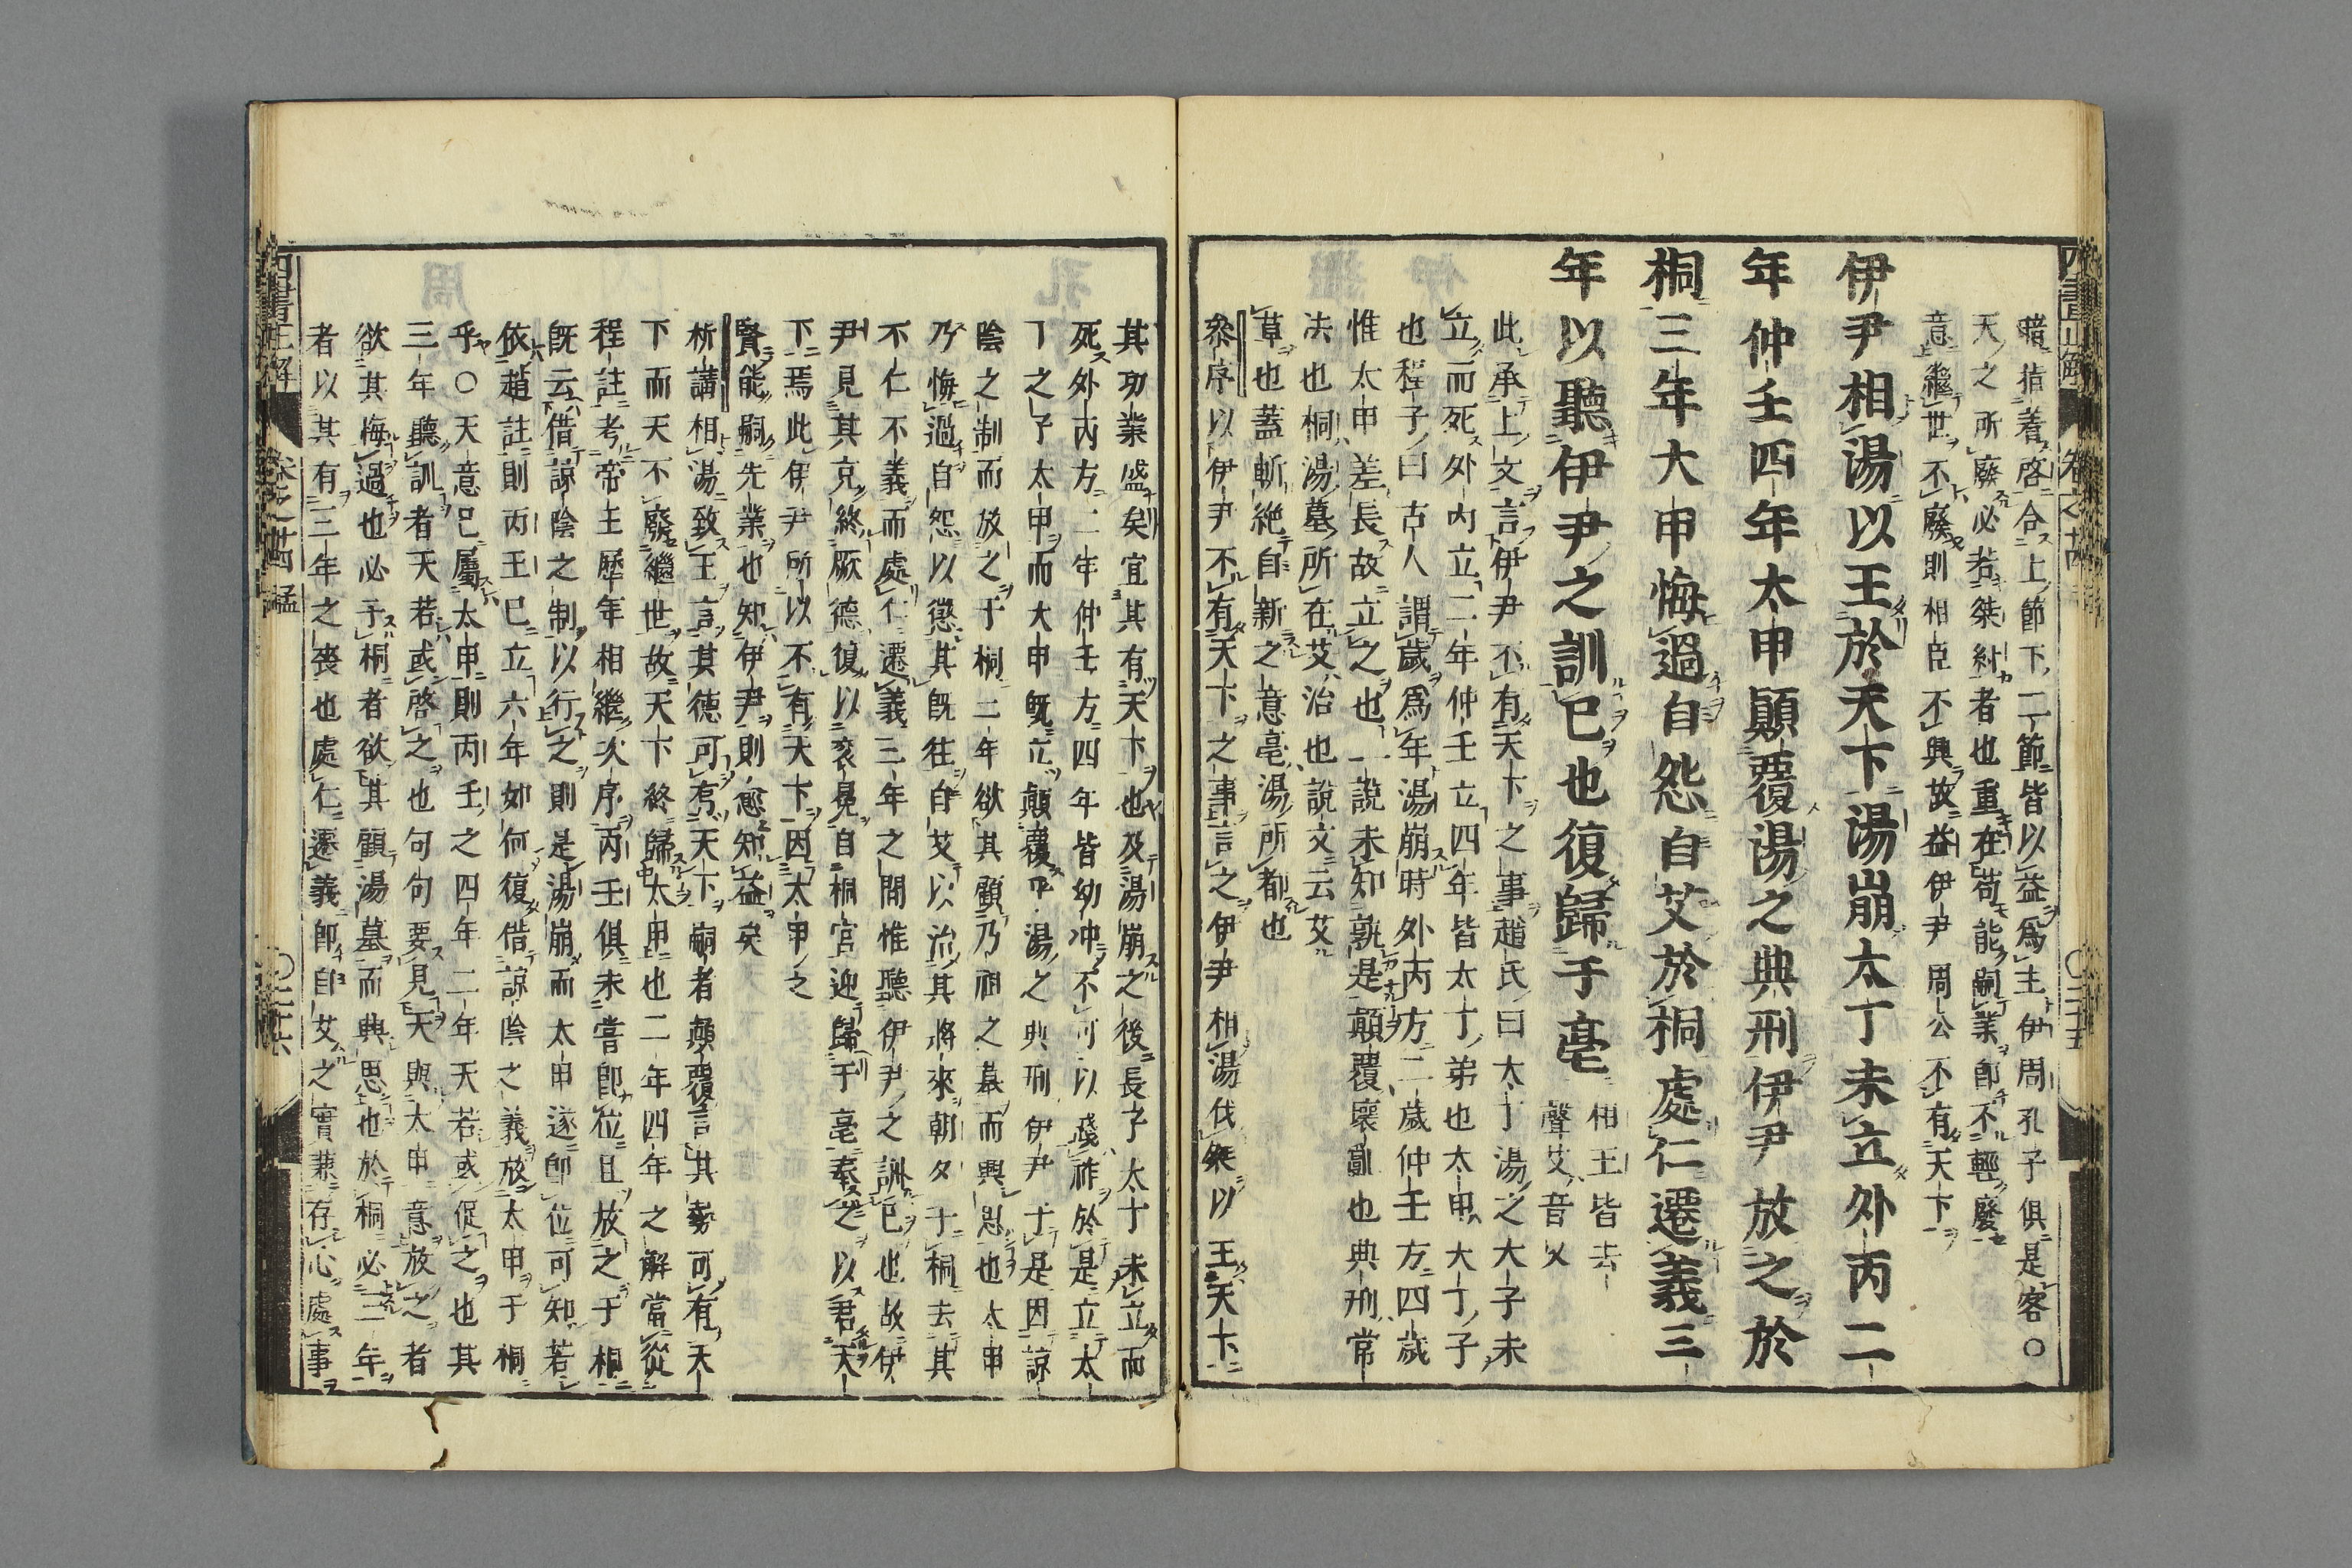 暗指着啓合上節下二節皆以益爲主伊周孔子俱是客〇
天之所廢必若桀紂者也重在苟能嗣業卽不輕廢
意繼世不廢則相臣不興故益伊尹周公不有天下
伊尹相湯以王於天下湯崩太丁未立外丙二
年仲壬四年太甲顚覆湯之典刑伊尹放之於
桐三年大甲悔過自怨自艾於桐處仁遷義三
年以聽伊尹之訓已也復歸于亳
相王皆去
聲艾音乂
此承上文言伊尹不有天下之事趙氏曰太丁湯之大子未
立而死外丙立二年仲壬立四年皆太丁弟也太甲大丁子
也程子曰古人謂歲爲年湯崩時外丙方二歲仲壬方四歲
惟太甲差長故立之也一說未知孰是顚覆壞亂也典刑常
法也桐湯墓所在艾治也說文云艾
草也蓋斬絶自新之意亳湯所都也
叅序以伊尹不有天下之事言之伊尹相湯伐桀以王天下
其功業盛矣宜其有天下也及湯崩之後長子太丁未立而
死外丙方二年仲壬方四年皆幼冲不可以踐祚於是立太
丁之子太甲而大甲旣立顚覆乎湯之典刑伊尹于是因諒
陰之制而放之于桐二年欲其顧乃祖之墓而興思也太甲
乃悔過自怨以懲其旣往自艾以治其將來朝夕于桐去其
不仁不義而處仁遷義三年之間惟聽伊尹之訓已也故伊
尹見其克終厥德復以袞冕自桐宮迎歸于亳奉之以君天
下焉此伊尹所以不有天下因太甲之
賢能嗣先業也知伊尹則愈知益矣
析講相湯致王言其德可有天下嗣者顚覆言其勢可有天
下而天不廢繼世故天下終歸太甲也二年四年之解當從
程註考帝王歷年相繼次序丙壬俱未嘗卽位且放之于桐
旣云借諒陰之制以行之則是湯崩而太甲遂卽位可知若
依趙註則丙壬已立六年如何復借諒陰之義放太甲于桐
乎〇天意已屬太甲則丙壬之四年二年天若或促之也其
三年聽訓者天若或啓之也句句要見天與大甲意放之者
欲其悔過也必于桐者欲其顧湯墓而興思也於桐必三年
者以其有三年之喪也處仁遷義卽自艾之實兼存心處事